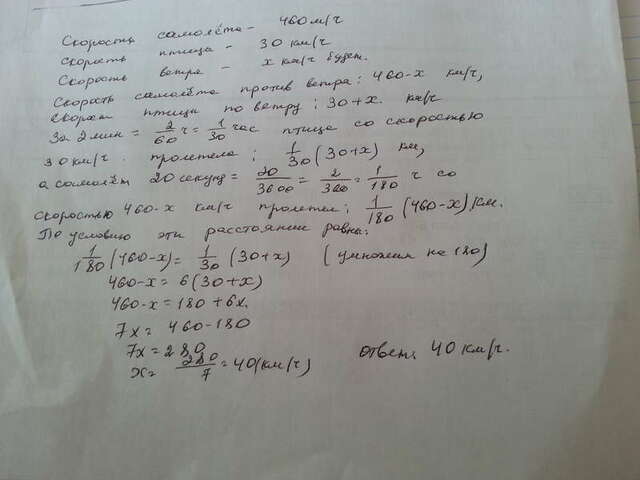 Скорость самолёта - 460 м/ч
скорость птица - 30 км/ч
Скорость ветра - x км/ч будет.
Скорость самолёта против ветра: 460-x км/ч,
скорост птицы по ветру: 30+x. км/ч
За 2 мин = 2/60 ч = 1/30 час птица со скоростью
30 км/ч. пролетела; 1/30 (30+x) км,
а самолёт 20 секунд = 20/3600 = 2/360 = 1/180 ч со
скоростью 460-x км/ч пролетел; 1/180 (460-x) км.
По условию эти расстоянии равны:
1/180 (460-x) = 1/30 (30+x) (умножим на 180)
460-x = 6(30+x)
460-x = 180+6x.
7x = 460-180
7x = 280
x = 280/7 = 40 (км/ч) ответ: 40 км/ч.